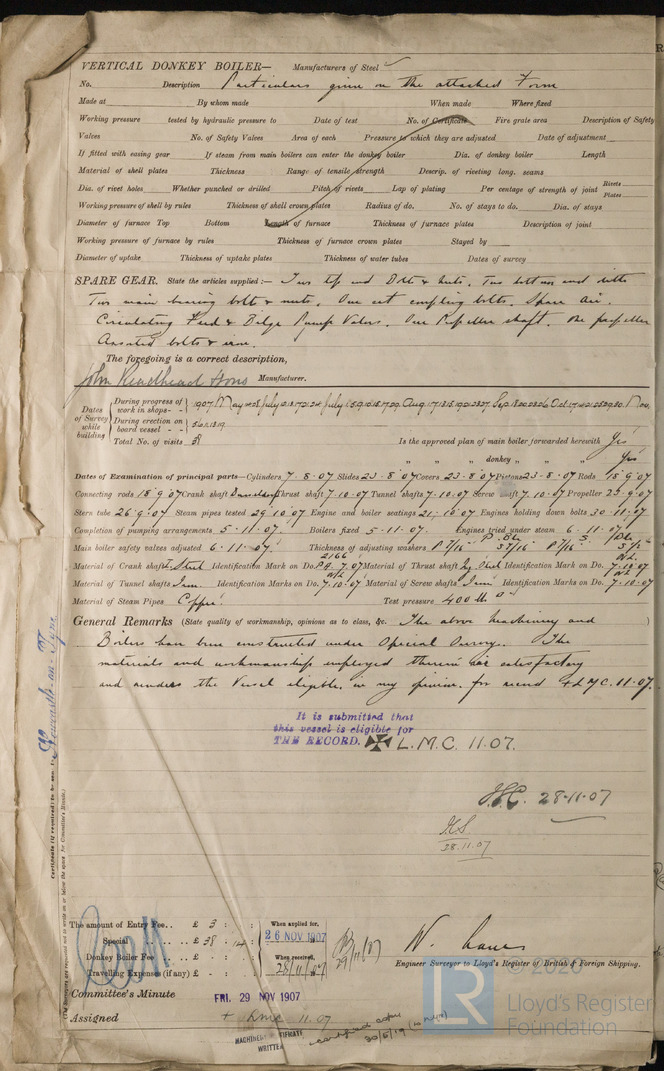 VERTICAL DONKEY BOILER— Manufacturers of Steel
No. Description Particulars given on the attached Form
Made at By whom made When made Where fixed
Working pressure tested by hydraulic pressure to Date of test No. of Certificate Fire grate area Description of Safety
Valves No. of Safety Valves Area of each Pressure to which they are adjusted Date of adjustment
If fitted with easing gear If steam from main boilers can enter the donkey boiler Dia. of donkey boiler Length
Material of shell plates Thickness Range of tensile strength Descrip. of riveting long. seams
Dia. of rivet holes Whether punched or drilled Pitch of rivets Lap of plating Per centage of strength of joint Rivets Plates
Working pressure of shell by rules Thickness of shell crown plates Radius of do. No. of stays to do. Dia. of stays
Diameter of furnace Top Bottom Length of furnace Thickness of furnace plates Description of joint
Working pressure of furnace by rules Thickness of furnace crown plates Stayed by
Diameter of uptake Thickness of uptake plates Thickness of water tubes Dates of survey
SPARE GEAR. State the articles supplied:— Two top end bolts & nuts. Two bottom end ditto
Two main bearing bolts & nuts. One set coupling bolts. Spare Air.
Circulating Feed & Bilge Pump Valves. One Propeller shaft. One propeller
Assorted bolts & iron.
The foregoing is a correct description,
John Readhead & Sons Manufacturer.
Dates of Survey while building
During progress of work in shops - - 1907. May
During erection on board vessel - -
Total No. of visits 38 Is the approved plan of main boiler forwarded herewith Yes
" " donkey " " " Yes
Dates of Examination of principal parts—Cylinders 7.8.07 Slides 23.8.07 Covers 23.8.07 Pistons 23.8.07 Rods 18.9.07
Connecting rods 18.9.07 Crank shaft Thrust shaft 7.10.07 Tunnel shafts 7.10.07 Screw shaft 7.10.07 Propeller 23.9.07
Stern tube 26.9.07 Steam pipes tested 29.10.07 Engine and boiler seatings 21.10.07 Engines holding down bolts 30.11.07
Completion of pumping arrangements 5.11.07. Boilers fixed 5.11.07. Engines tried under steam 6.11.07
Main boiler safety valves adjusted 6.11.07 Thickness of adjusting washers
Material of Crank shaft Steel Identification Mark on Do. 2166 Material of Thrust shaft Identification Mark on Do. 7.10.07
Material of Tunnel shafts Iron. Identification Marks on Do. 7.10.07 Material of Screw shafts Iron. Identification Marks on Do. 7.10.07
Material of Steam Pipes Copper. Test pressure 400 lb
General Remarks (State quality of workmanship, opinions as to class, &c. The above Machinery and
Boilers have been constructed under Special Survey. The
materials and workmanship employed therein are satisfactory
and renders the Vessel eligible, in my opinion, for record + L.M.C. 11.07.
It is submitted that
this vessel is eligible for
THE RECORD. L.M.C. 11.07.
28-11-07
28.11.07
Newcastle-on-Tyne
The amount of Entry Fee.. £ 3 : : When applied for,
Special .. .. .. £ 38 : 14 : 26 NOV 1907
Donkey Boiler Fee .. .. £ - : : When received,
Travelling Expenses (if any) £ - : : 28/11/07
29/11/07
Engineer Surveyor to Lloyd's Register of British & Foreign Shipping.
Committee's Minute FRI. 29 NOV 1907
Assigned + LMC 11.07
MACHINERY CERTIFICATE
WRITTEN
certified copy
30/5/19
© 2020
LR
Lloyd's Register
Foundation